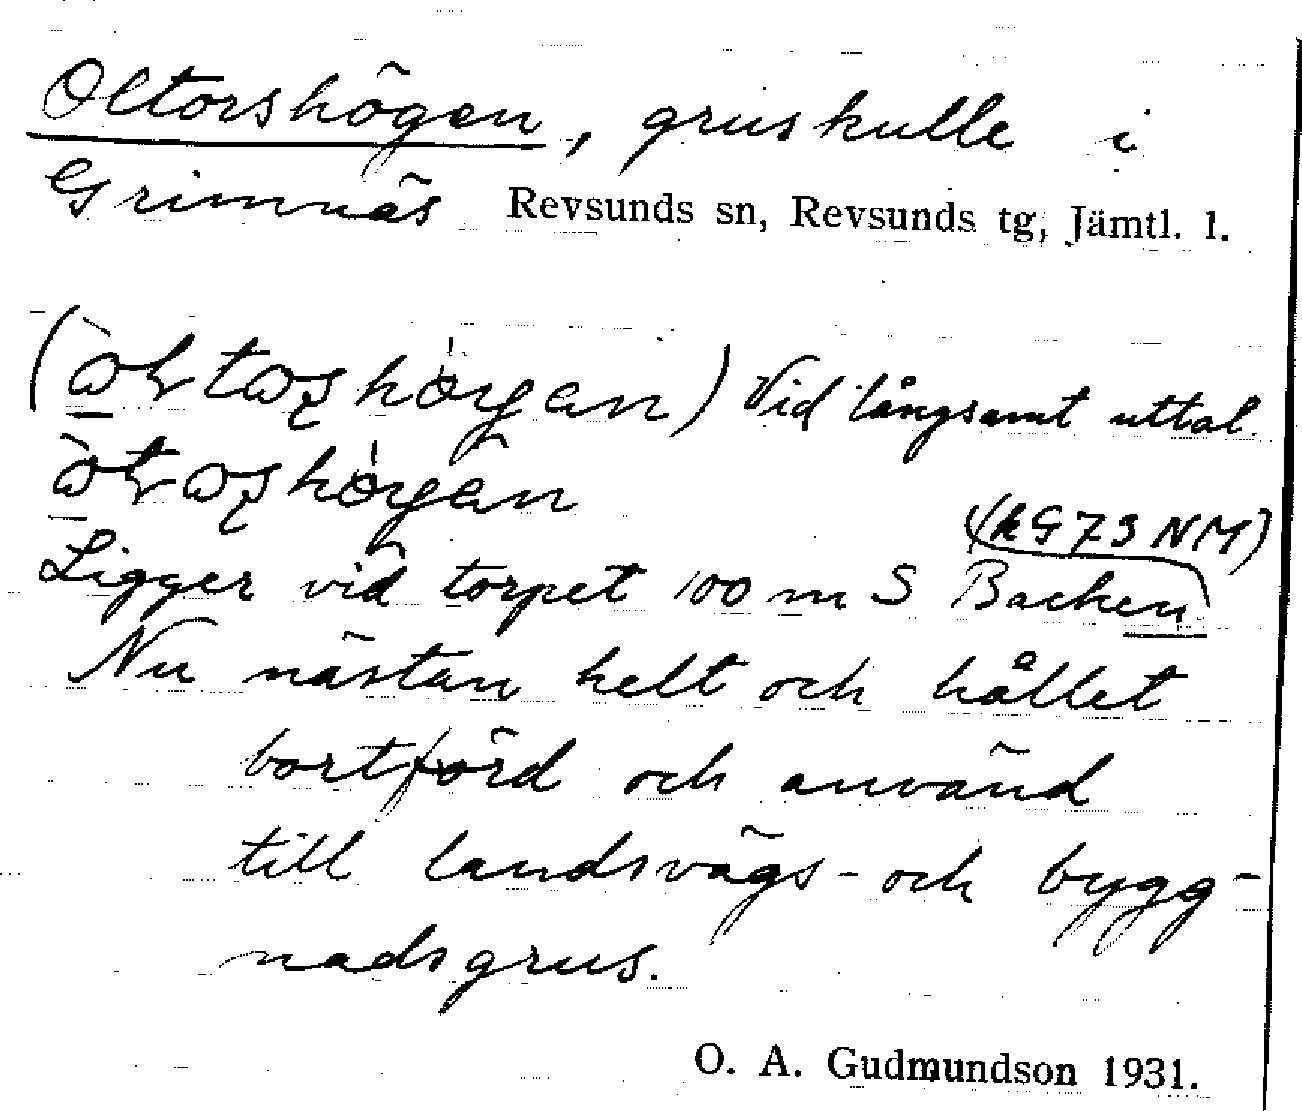 Oltorshögen, gruskulle i
Grimnäs Revsunds sn, Revsunds tg, Jämtl. l.
Vid långsamt uttal.
Ligger vid torpet 100 m S Backen
Nu nästan helt och hållet
bortförd och använd
till landsvägs- och bygg-
nadsgrus.
O. A. Gudmundson 1931.